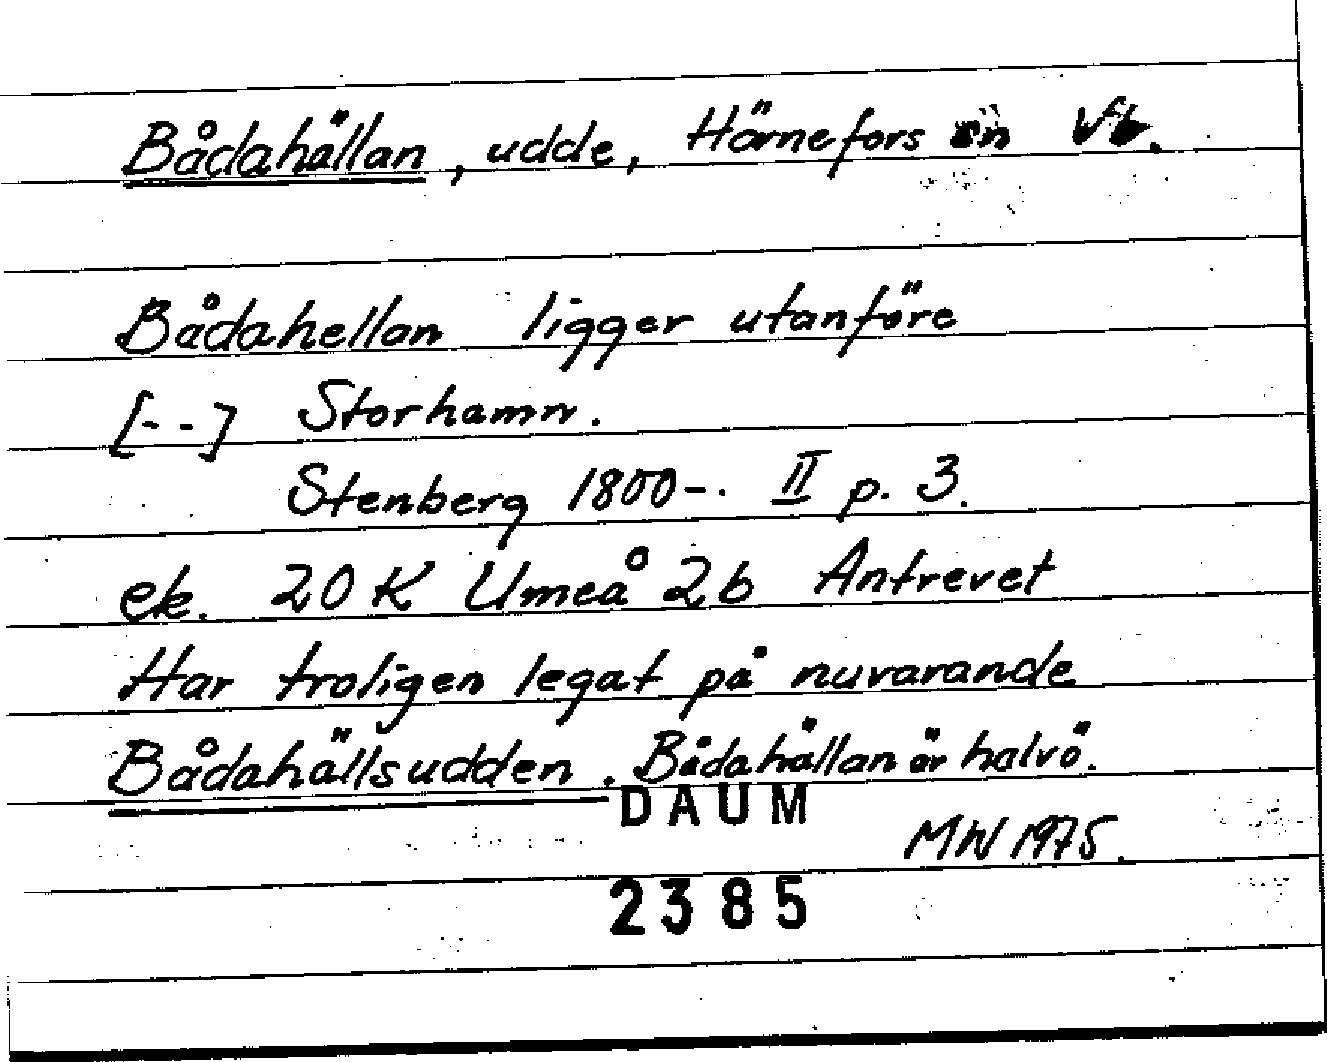 Bådahällan, udde, Hörnefors sn Vb.
Bådahellan ligger utanföre
[--] Storhamn.
Stenberg 1800-. II p. 3.
ek. 20 K Umeå 2b Antrevet
Har troligen legat på nuvarande
Bådahällsudden. Bådahällan är halvö.
DAUM
MW 1975.
2385